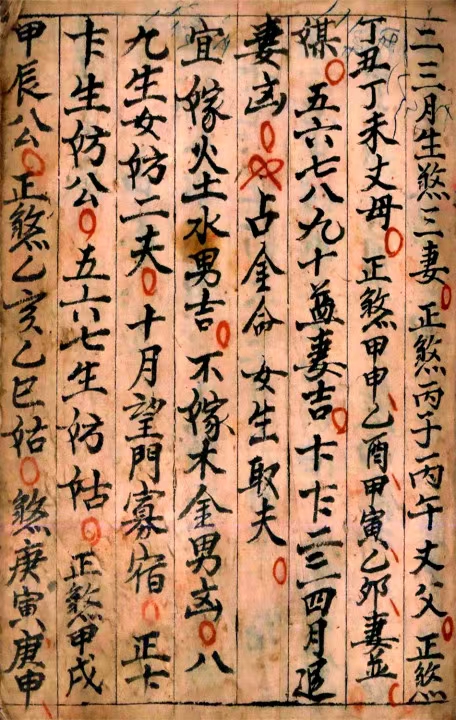 二三月生煞三妻。正煞丙子丙午丈父。正煞
丁丑丁未丈母。正煞甲申乙酉甲寅乙卯妻並
。五六七八九十益妻吉。卡卞二三四月進
妻凶。占金命女生取夫。
宜嫁火土水男吉。不嫁木金男凶。八
九生女妨二夫。十月望門寡宿。正卡
卡生妨公。五六七生妨姑。正煞甲戌
甲辰八公。正煞乙亥乙巳姑。煞庚寅庚申